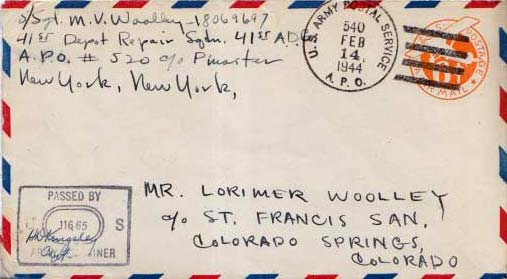 S/Sgt. M.V. Woolley - 18069697
41st Depot Repair Sqdn. 41st A.D.G.
A.P.O. # 520 c/o Pmaster
New York, New York,
U.S. ARMY POSTAL SERVICE
540
FEB
14
1944
A.P.O.
POSTAGE
AIR MAIL
PASSED BY
11665 S
EXAMINER
MR. LORIMER WOOLLEY
c/o ST. FRANCIS SAN,
COLORADO SPRINGS,
COLORADO